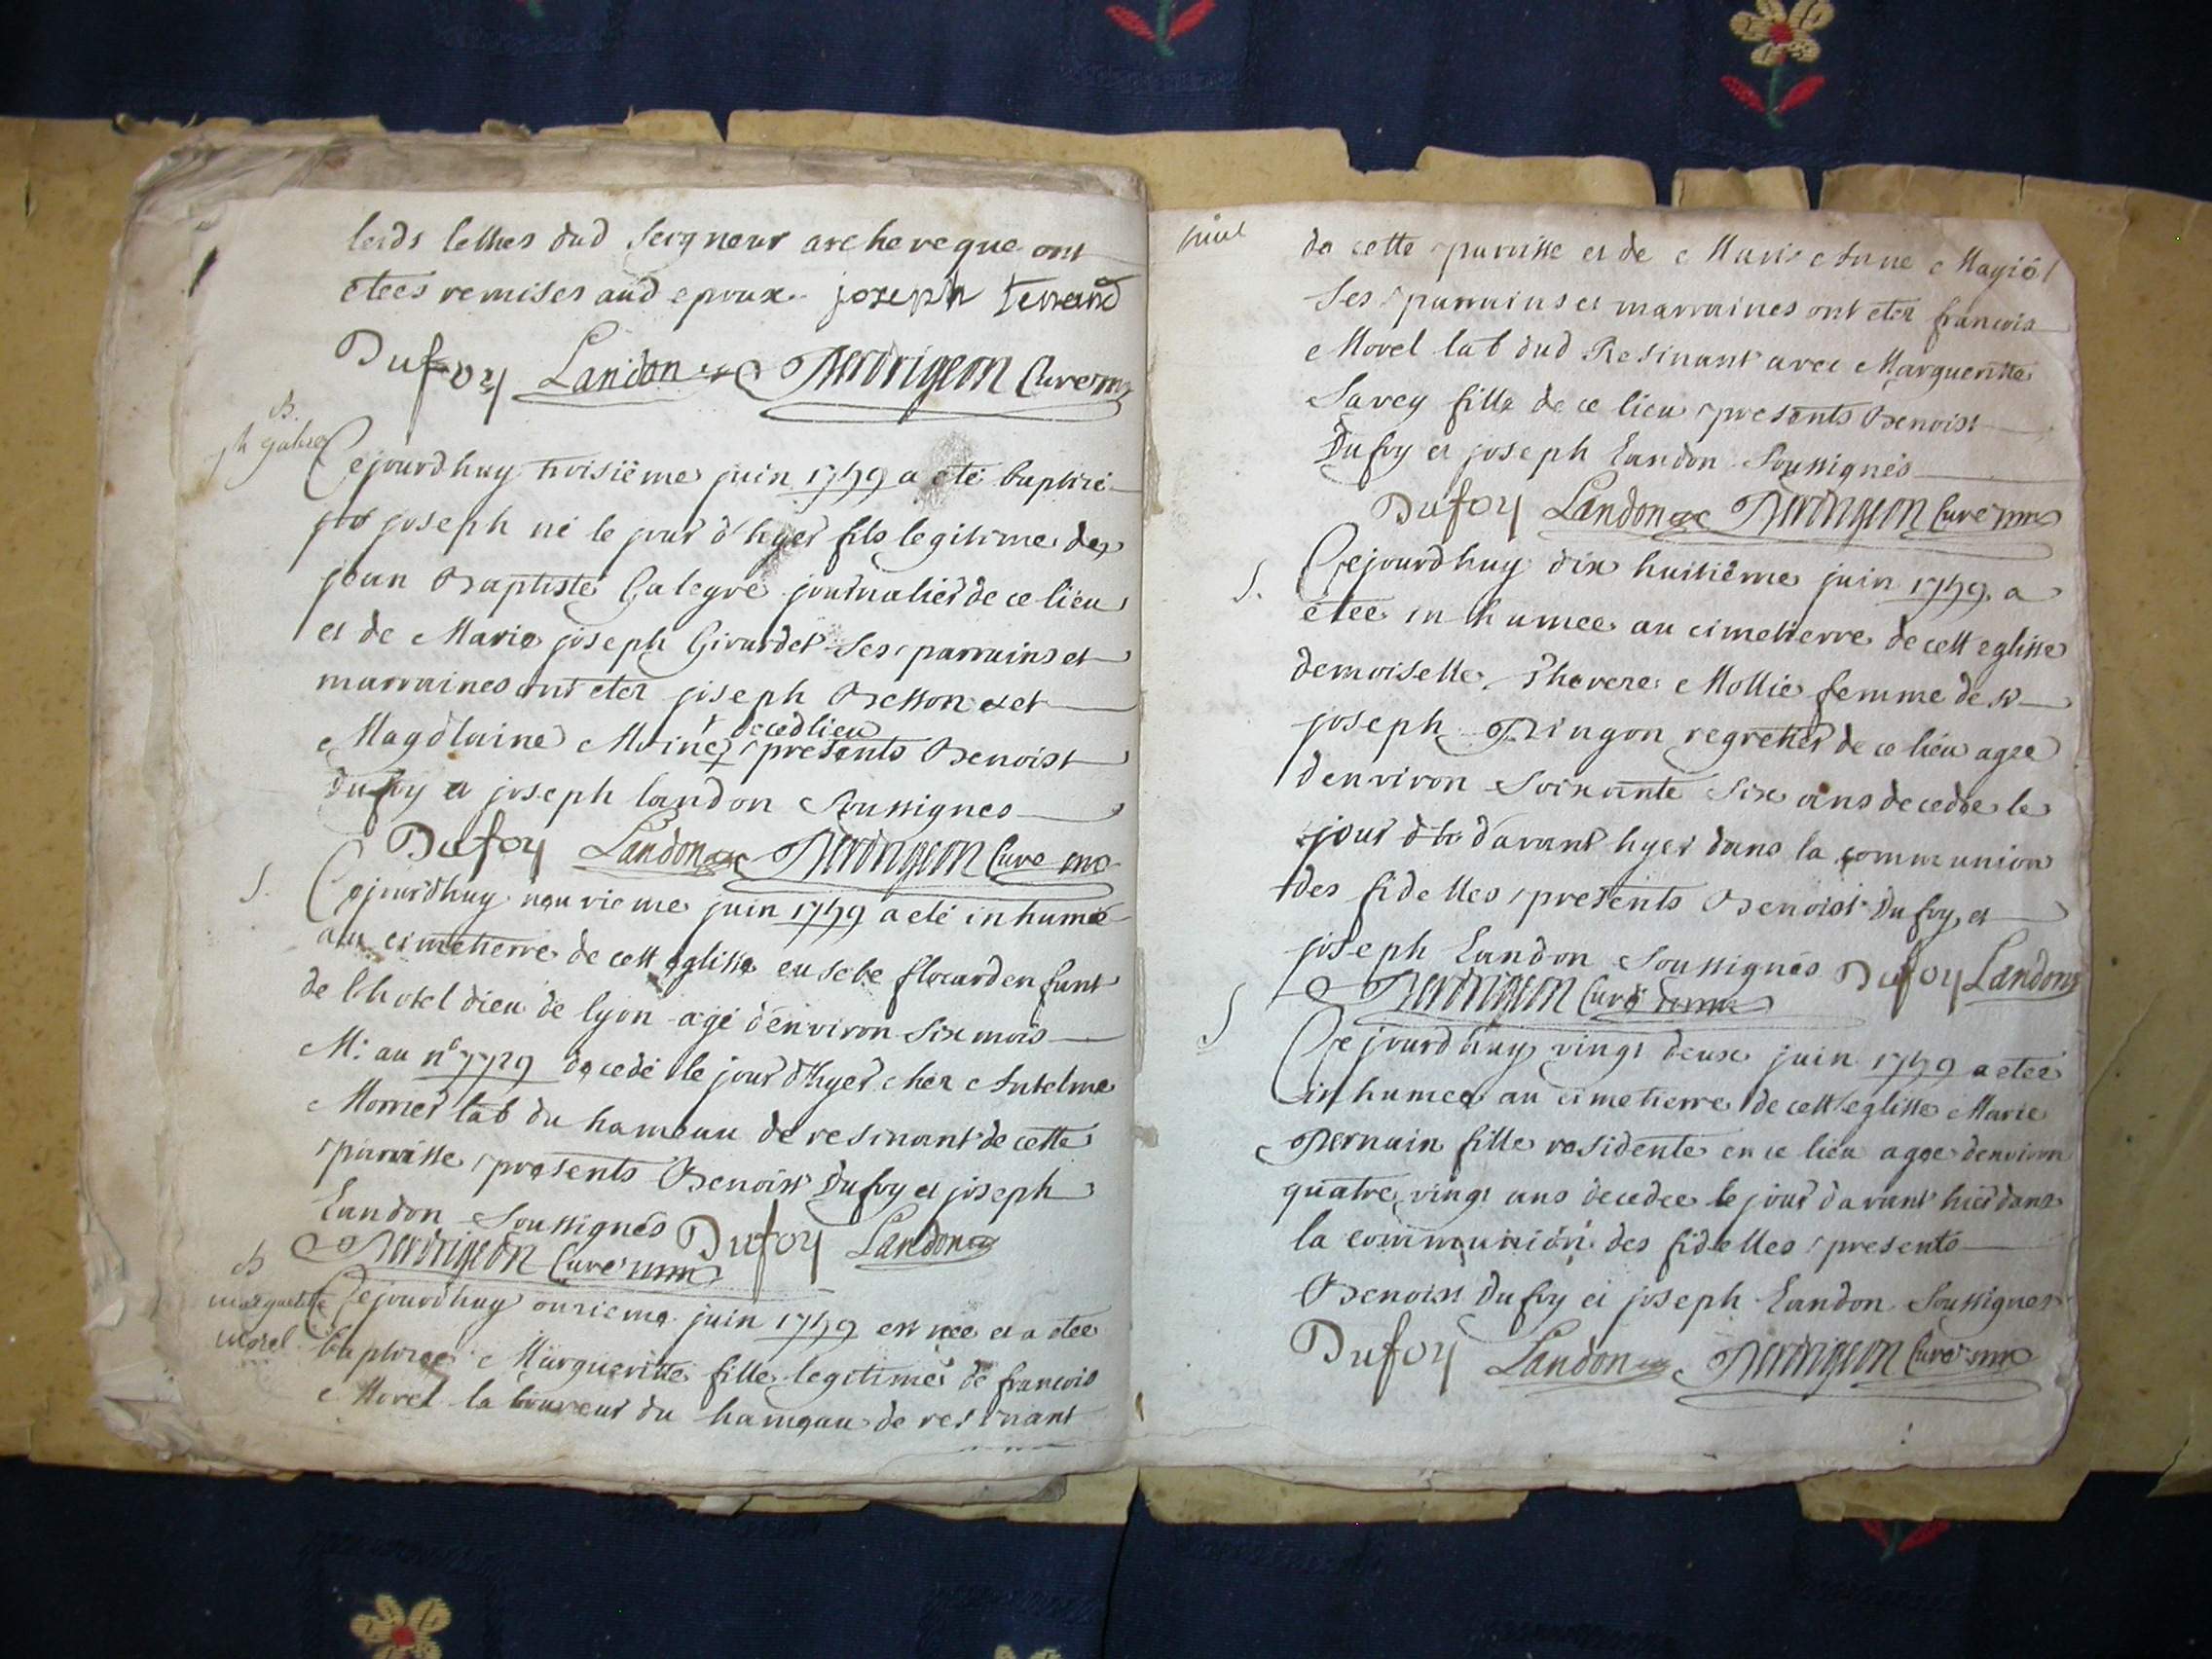 lesds lettres dud Seigneur archeveque ont
etees remises aud epoux joseph
Dufoy Landon Curé
B.
Cejourdhuy troisiême juin 1749 a eté baptisé
joseph né le jour d'hyer fils legitime de
jean Baptiste Galegre journalier de ce lieu
et de Marie joseph Girardet Ses parrains et
marraines ont eter joseph Besson et
decedlieu
Magdlaine Moine presents Benoist
dufoy et joseph landon Soussignes
Dufoy Landon Curé
S.
Cejourdhuy neuvieme juin 1749 a eté inhumé
au cimetierre de cett eglisse eusebe flocard enfant
de lhotel dieu de lyon agé d'environ Six mois
M: au n° 7729 decedé le jour d'hyer chez Antelme
Morel lab du hameau de resinant de cette
parroisse presents Benoist Dufoy et joseph
Landon Soussignés Dufoy Landon
Curé
B
margueritte
morel
Cejourdhuy onzieme juin 1749 est née et a etée
baptisee Margueritte fille legitime de francois
Morel laboureur du hameau de resinant
juin
de cette paroisse et de Marie Anne
Ses parrains et marraines ont eter francois
Morel lab dud Resinant avec Margueritte
Savey fille de ce lieu presents Benoist
Dufoy et joseph Landon Soussignés
Dufoy Landon Curé
S.
Cejourdhuy dix huitiême juin 1749 a
etee inhumee au cimetierre de cett eglisse
demoiselle Thereze Mollie femme de sr
joseph regrettier de ce lieu agee
d'environ Soixante Six ans decedée le
jour d'avant hyer dans la communion
des fidelles presents Benoist Dufoy et
joseph Landon Soussignés Dufoy Landon
Curé
S
Cejourdhuy vingt deux juin 1749 a etée
inhumee au cimetierre de cett eglisse Marie
Pernain fille residente en ce lieu agee denviron
quatre vingt ans decedee le jour davant hier dans
la communion des fidelles presents
Benoist Dufoy et joseph Landon Soussignes
Dufoy Landon Curé